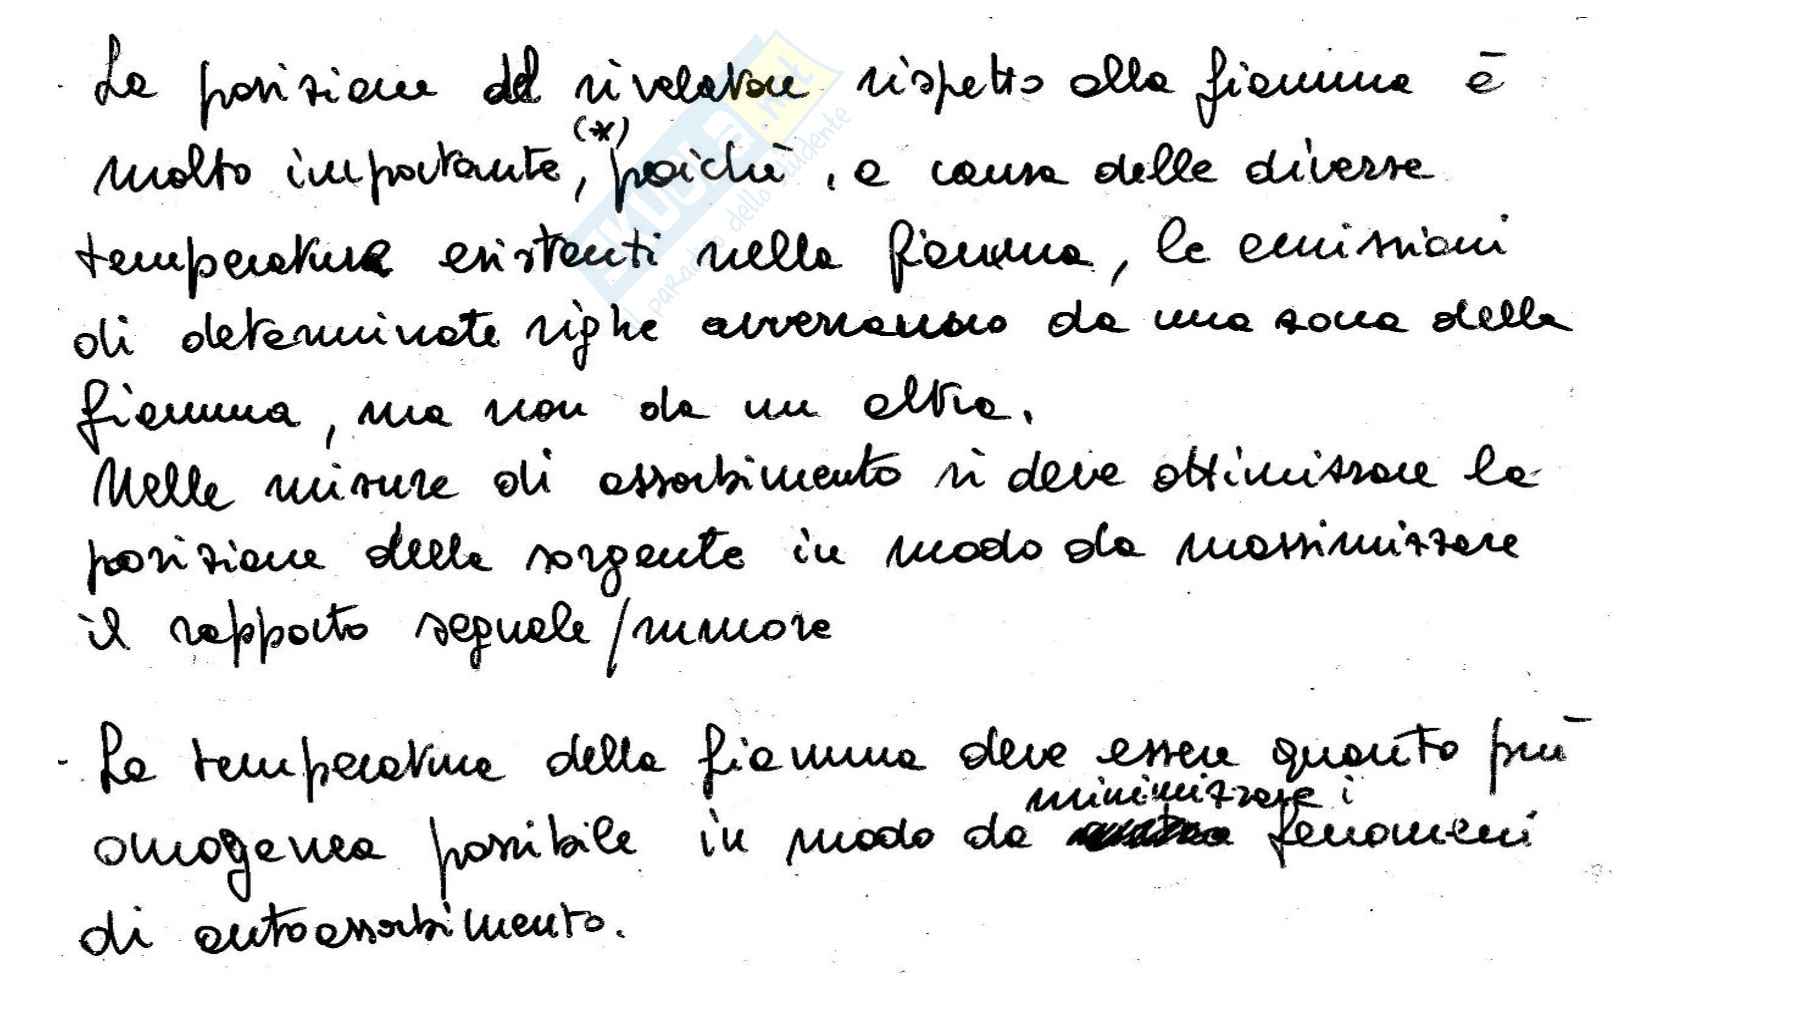 - La posizione del rivelatore rispetto alla fiamma è
(*)
molto importante, poiché, a causa delle diverse
temperature esistenti nella fiamma, le emissioni
di determinate righe avverranno da una zona della
fiamma, ma non da un altra.
Nelle misure di assorbimento si deve ottimizzare la
posizione della sorgente in modo da massimizzare
il rapporto segnale/rumore
- La temperatura della fiamma deve essere quanto più
minimizzare i
omogenea possibile in modo da fenomeni
di autoassorbimento.
SKUOLA.net
paradiso dello studente